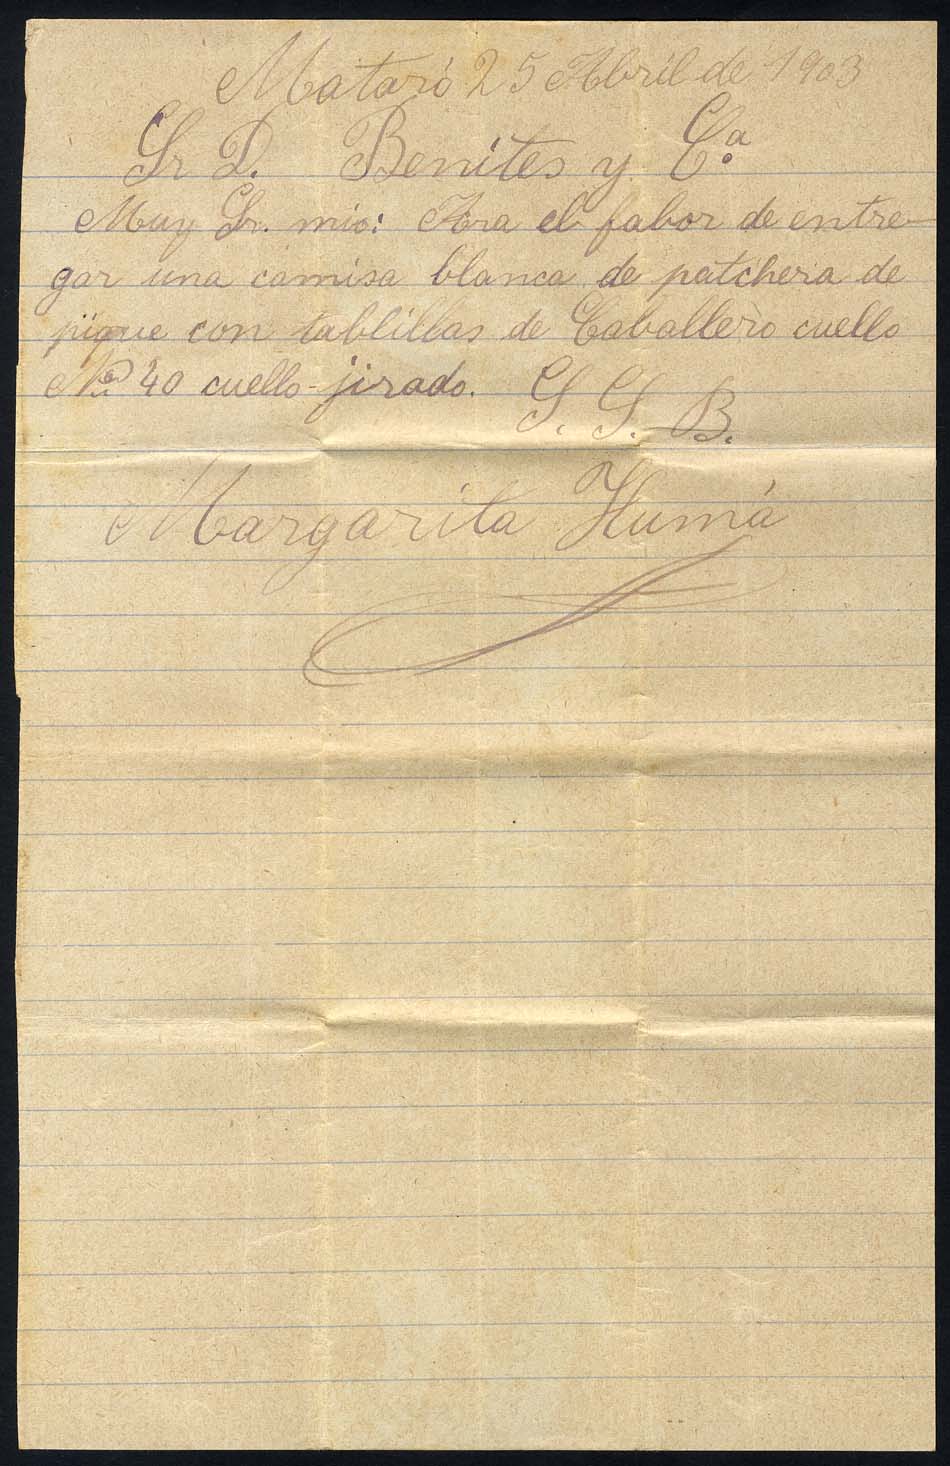 Mataró 25 Abril de 1903
Sr D. Benites y Cª
Muy Sr. mio: Ara el fabor de entre-
gar una camisa blanca de patchera de
pique con tablillas de Caballero cuello
Nº 40 cuello jirado. S. S. B.
Margarita Humá